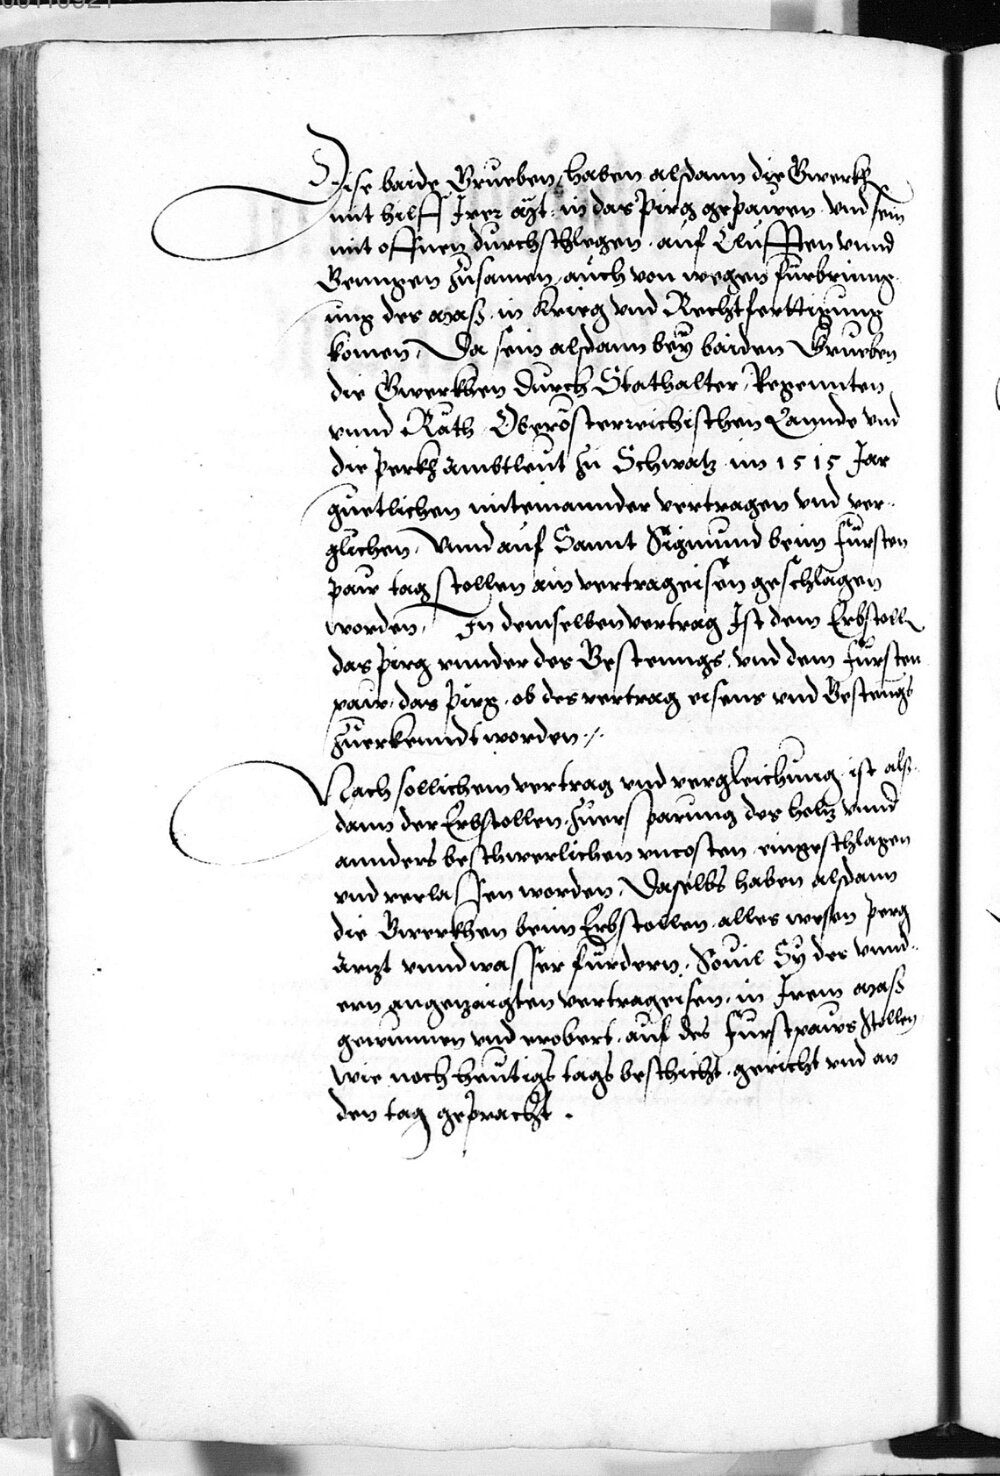 Dise baide Grueben, haben alsdann die Gwerkh
mit hilff Irer Zyt. in das Pirg gepawen. vnd sein
mit offnen durchschlegen. auf Clufften vnnd
Genngen zusamen, auch von wegen fürbrinng-
ung der Mass. in Krieg vnd Rechtferttigung
komen, Da sein alsdann bey baiden Grueben
die Gwerkhen durch Stathalter, Regennten
vnnd Räth Oberösterreichischen Lannde vnd
die Perkhambtleut zu Schwatz im 1515 Jar
guetlichen miteinannder vertragen vnd ver-
glichen. Vnnd auf Sannt Sigmund beim Fürsten
paw tag stollen ain vertrageisen geschlagen
worden, In demselben vertrag Ist dem Erbstolln
das Pirg vnnder des Gestenngs, vnd dem Fürsten
paw. das Pirg. ob des vertrag eisens vnd Gestenngs
zuerkenndt worden ./.
Nach sollichem vertrag vnd vergleichung. ist alß-
dann der Erbstollen. zu ersparung des holtz vnnd
annders beschwerlichen vncosten. eingeschlagen
vnd verlassen worden. Daselbs haben alsdann
die Gwerkhen beim Erbstollen. alles wesen Perg
Ärtzt vnnd wasser fürdern, Souil Sy der vnnd-
ern angezaigten vertrageisen. in Irem Mass
gewunnen vnd erobert. auf des Fürstpaws Stollen
wie noch heutigs tags beschicht. gericht vnd an
den tag gepracht.